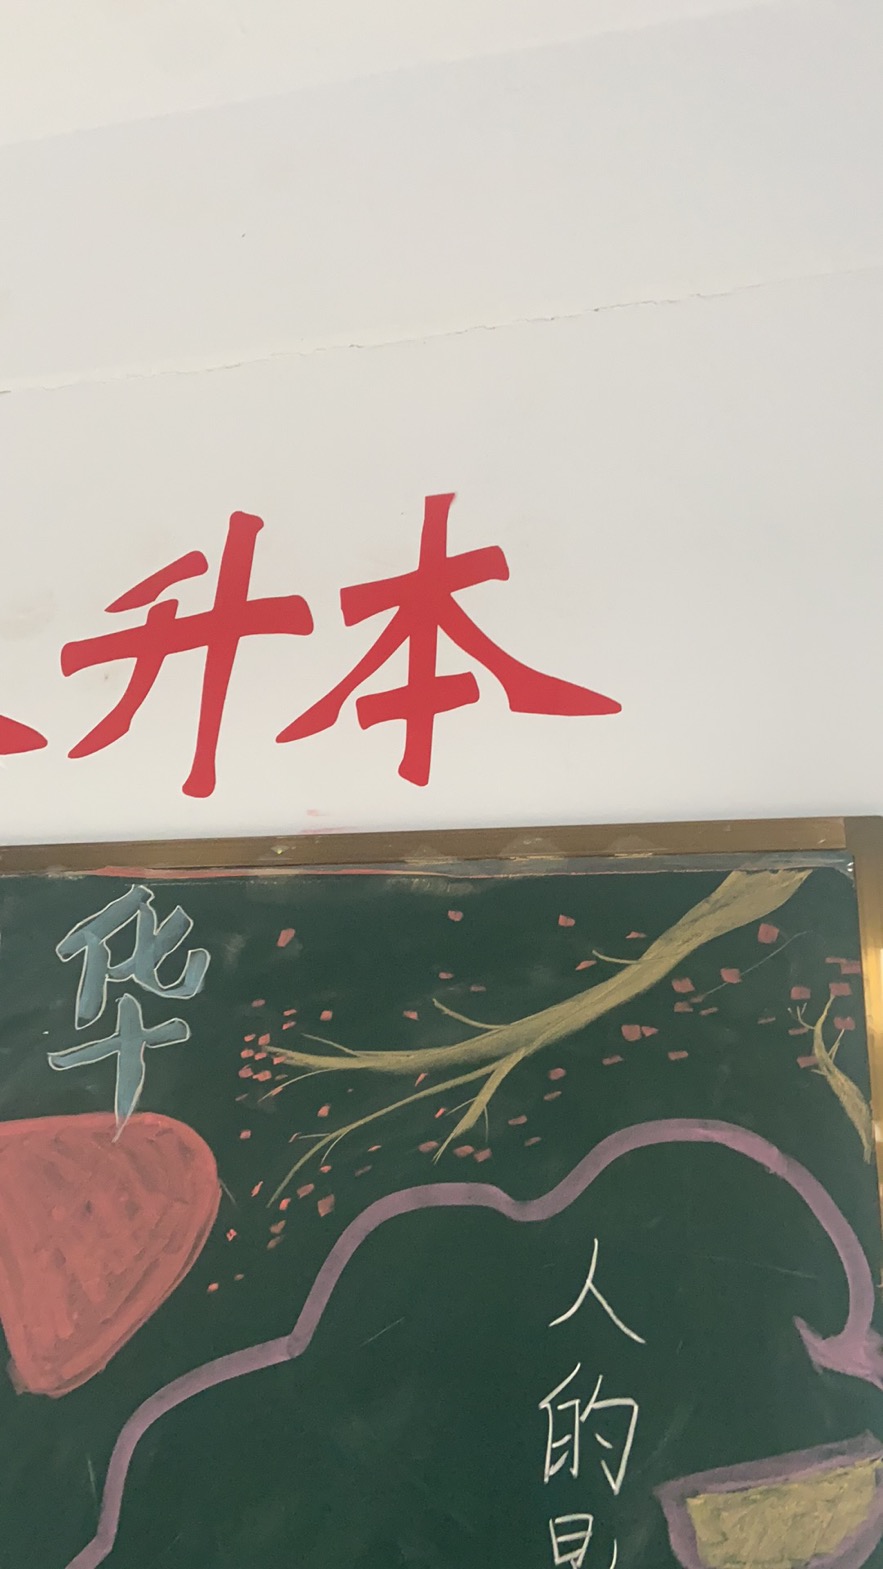 升本
华
人的